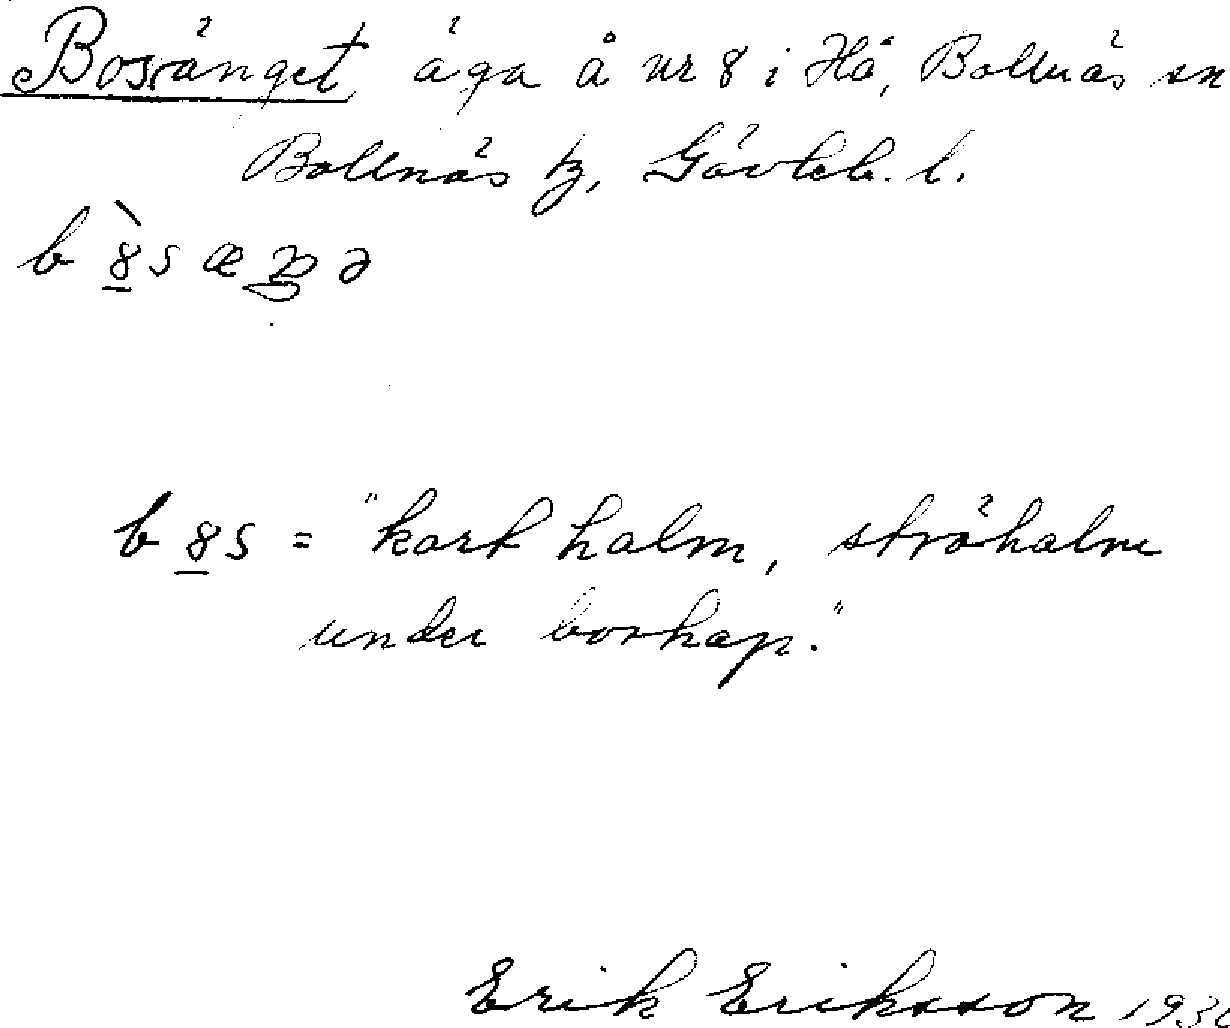 Bosänget äga å nr 8 i Hå, Bollnäs sn
Bollnäs tg, Gävleb. l.
b 8̀s æ ə
b 8s = "kort halm, ströhalm
under boskap."
Erik Eriksson